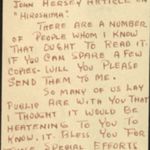 JOHN HERSEY ARTICLE ON
"HIROSHIMA".
THERE ARE A NUMBER
OF PEOPLE WHOM I KNOW
THAT OUGHT TO READ IT.
IF YOU CAN SPARE A FEW
COPIES- WILL YOU PLEASE
SEND THEM TO ME.
SO MANY OF US LAY
PUBLIC ARE WITH YOU THAT
I THOUGHT IT WOULD BE
HEATENING TO YOU TO
KNOW. IT. BLESS YOU FOR
YOUR SPECIAL EFFORTS